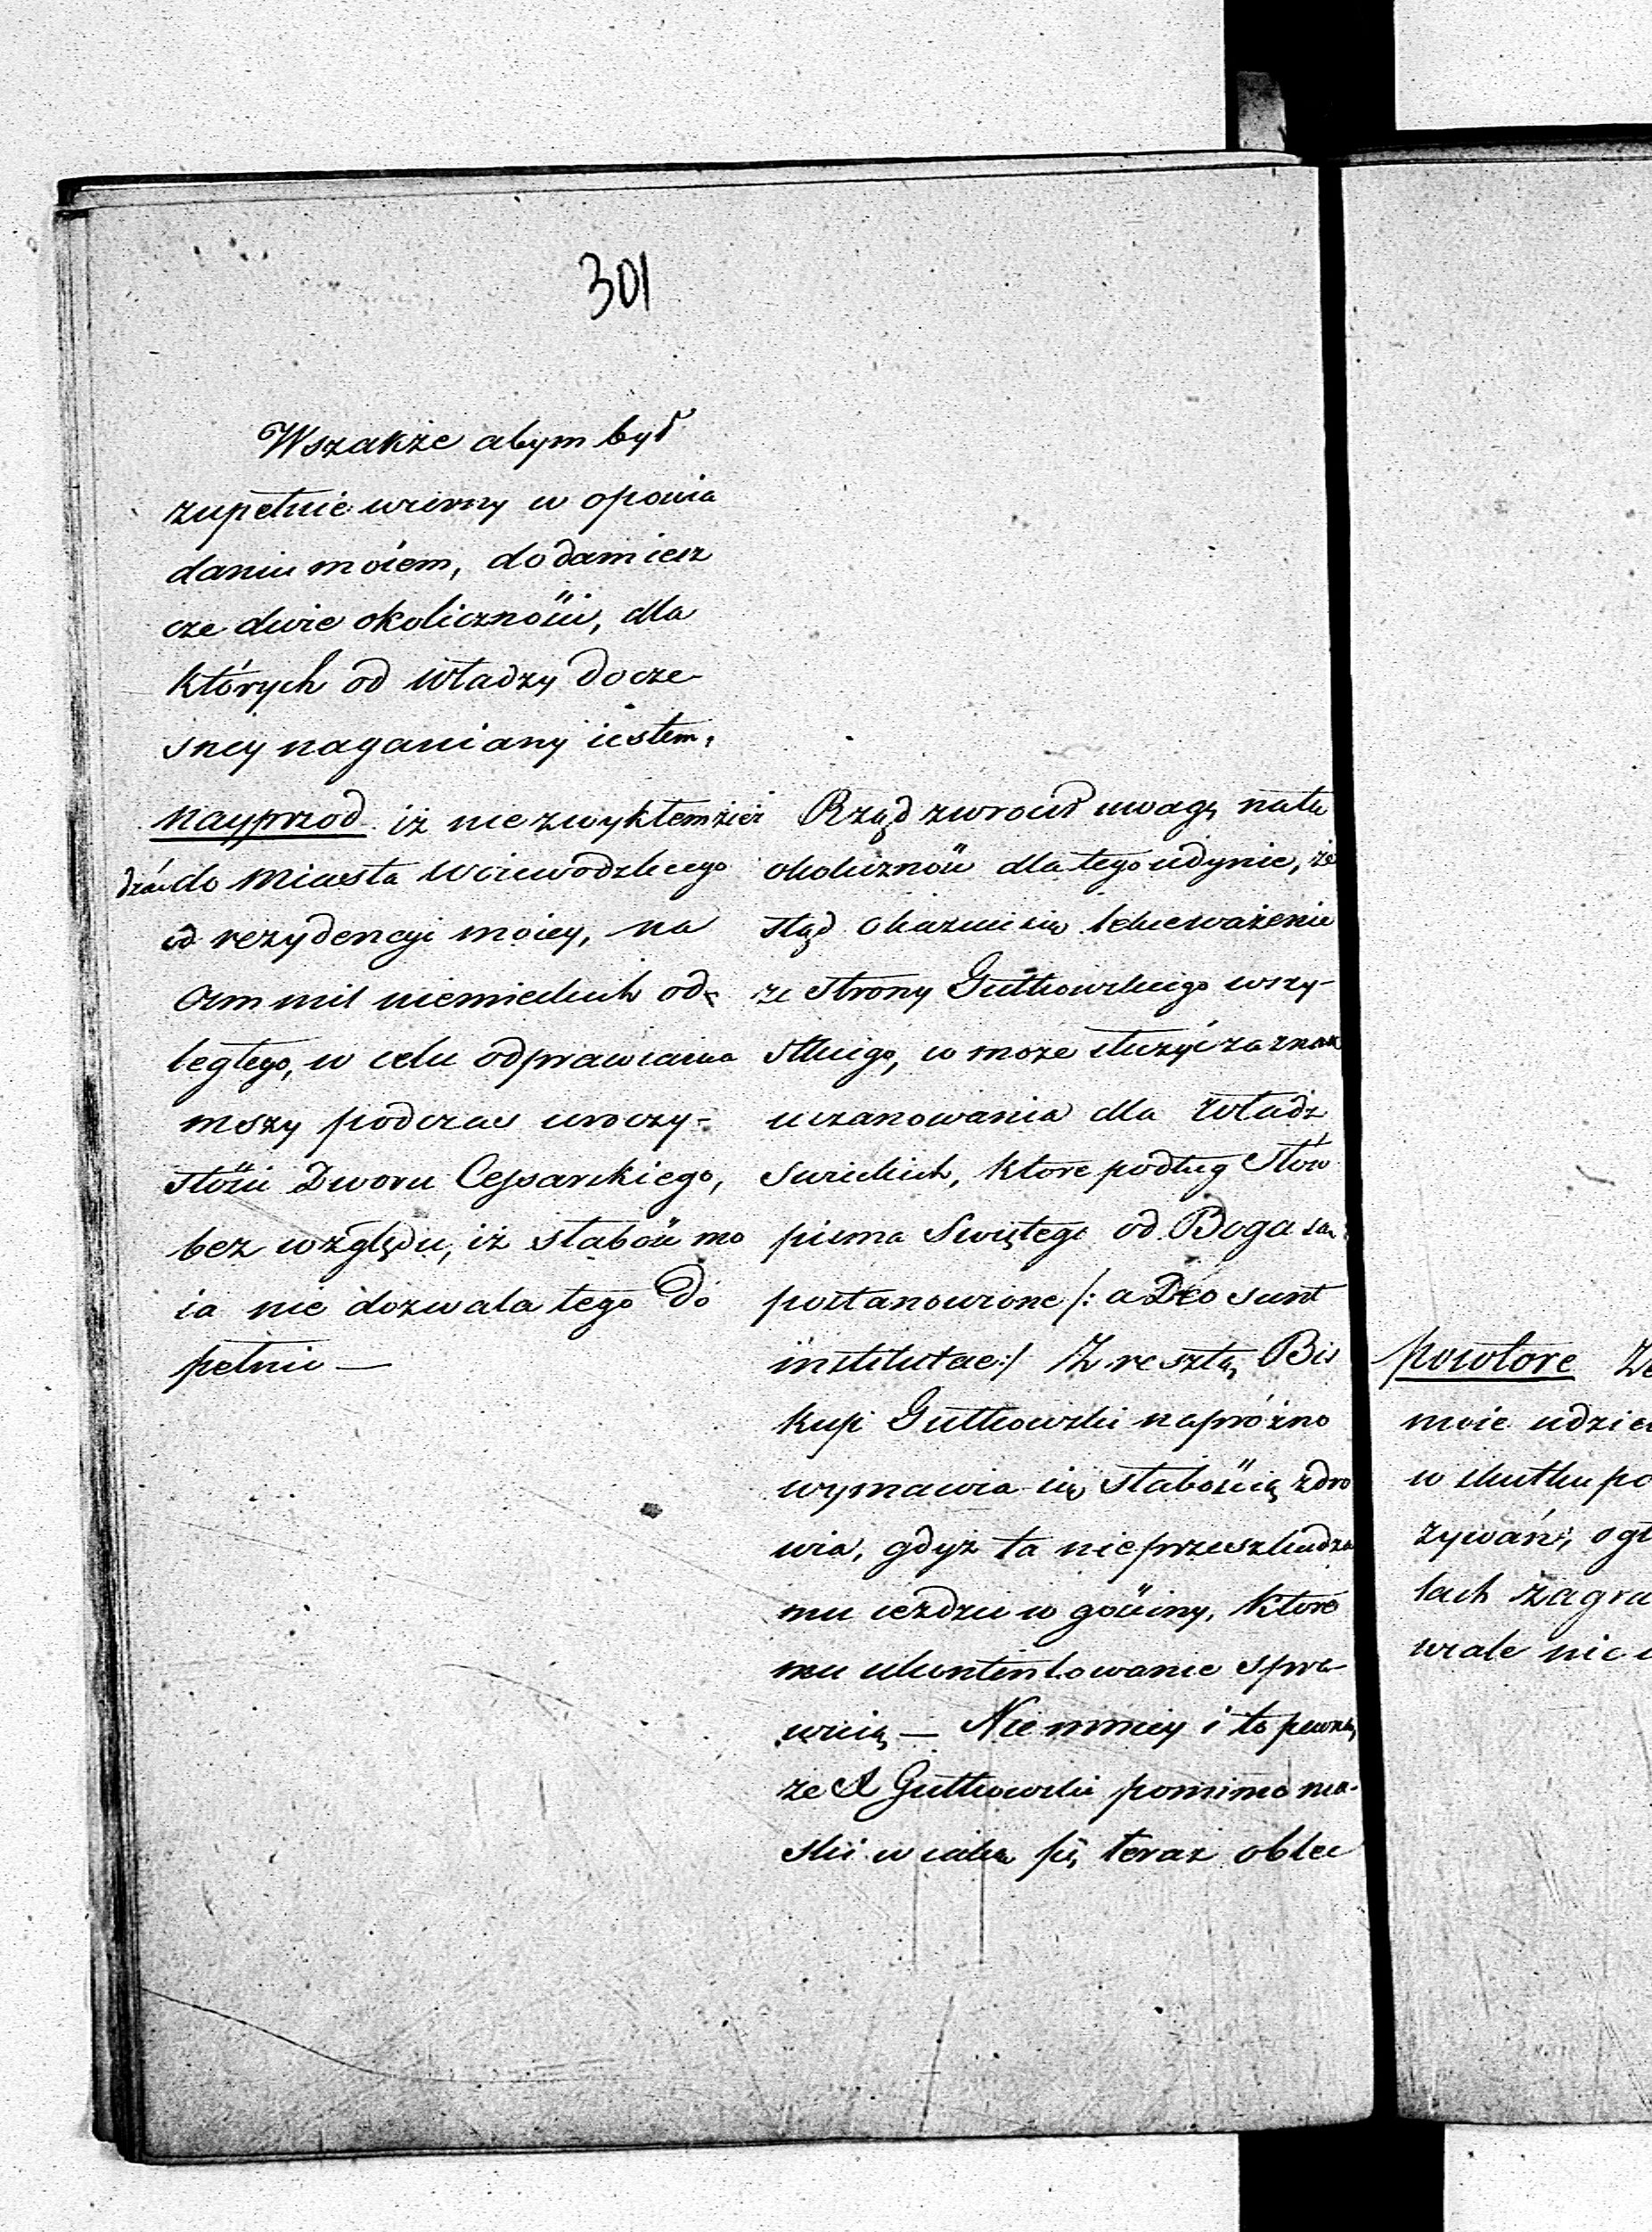 301
Wszakże abym był
zupełnie wierny w opowia
daniu moiem, dodam iesz
cze dwie okoliczności, dla
których od władzy docze-
sney naganiany iestem,
nayprzod iż nie zwykłem ieź
dzić do Miasta Woiewodzkiego
od rezydencyi moiey, na
ośm mil niemieckich od-
ległego, w celu odprawiania
mszy podczas uroczy-
stości Dworu Cesarskiego,
bez względu, iż słabość mo
ia nie dozwala tego do
pełnić —
Rząd zwrócił uwagę na tę
okoliczność dla tego iedynie, że
ztąd okazuie się lekceważenie
ze strony Gutkowskiego wszy-
stkiego, co może służyć za znak
uszanowania dla Władz
Swieckich, które podług słów
pisma Swiętego od Boga są
postanowione /: a Deo sunt
institutae :/ Z resztą Bis
kup Gutkowski napróżno
wymawia się słabością zdro
wia, gdyż ta nieprzeszkadza
mu ieździć w gościny, które
mu ukontentowanie spra-
wuią — Nie mniey i to pewną,
że X Gutkowski pomimo
teraz
powtore
moie
w skutku
zywań,
lach
wcale nie